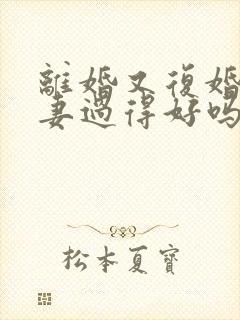 離婚又復婚
妻過得好嗎
松本夏寶